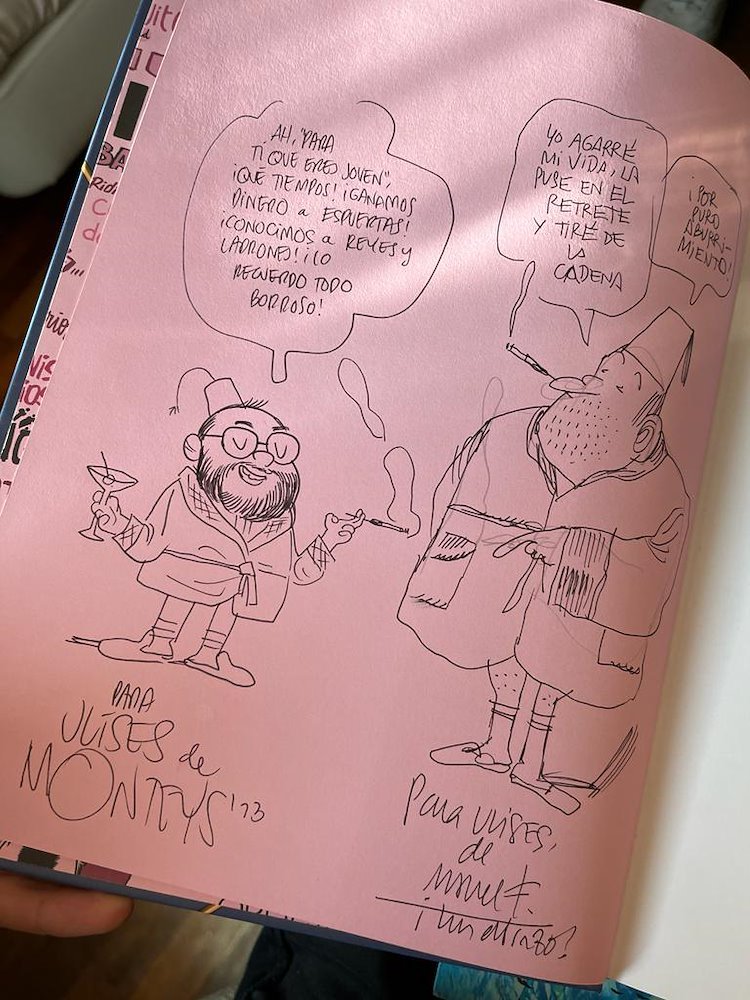 AH, "PARA
TI QUE ERES JOVEN",
¡QUÉ TIEMPOS! ¡GANAMOS
DINERO A ESPUERTAS!
¡CONOCIMOS A REYES Y
LADRONES! ¡LO
RECUERDO TODO
BORROSO!
YO AGARRÉ
MI VIDA, LA
PUSE EN EL
RETRETE
Y TIRÉ DE
LA
CADENA
¡POR
PURO
ABURRI-
MIENTO!
PARA
ULISES de
MONTEYS '23
Para ULISES,
de
Manel F.
¡Un abrazo!